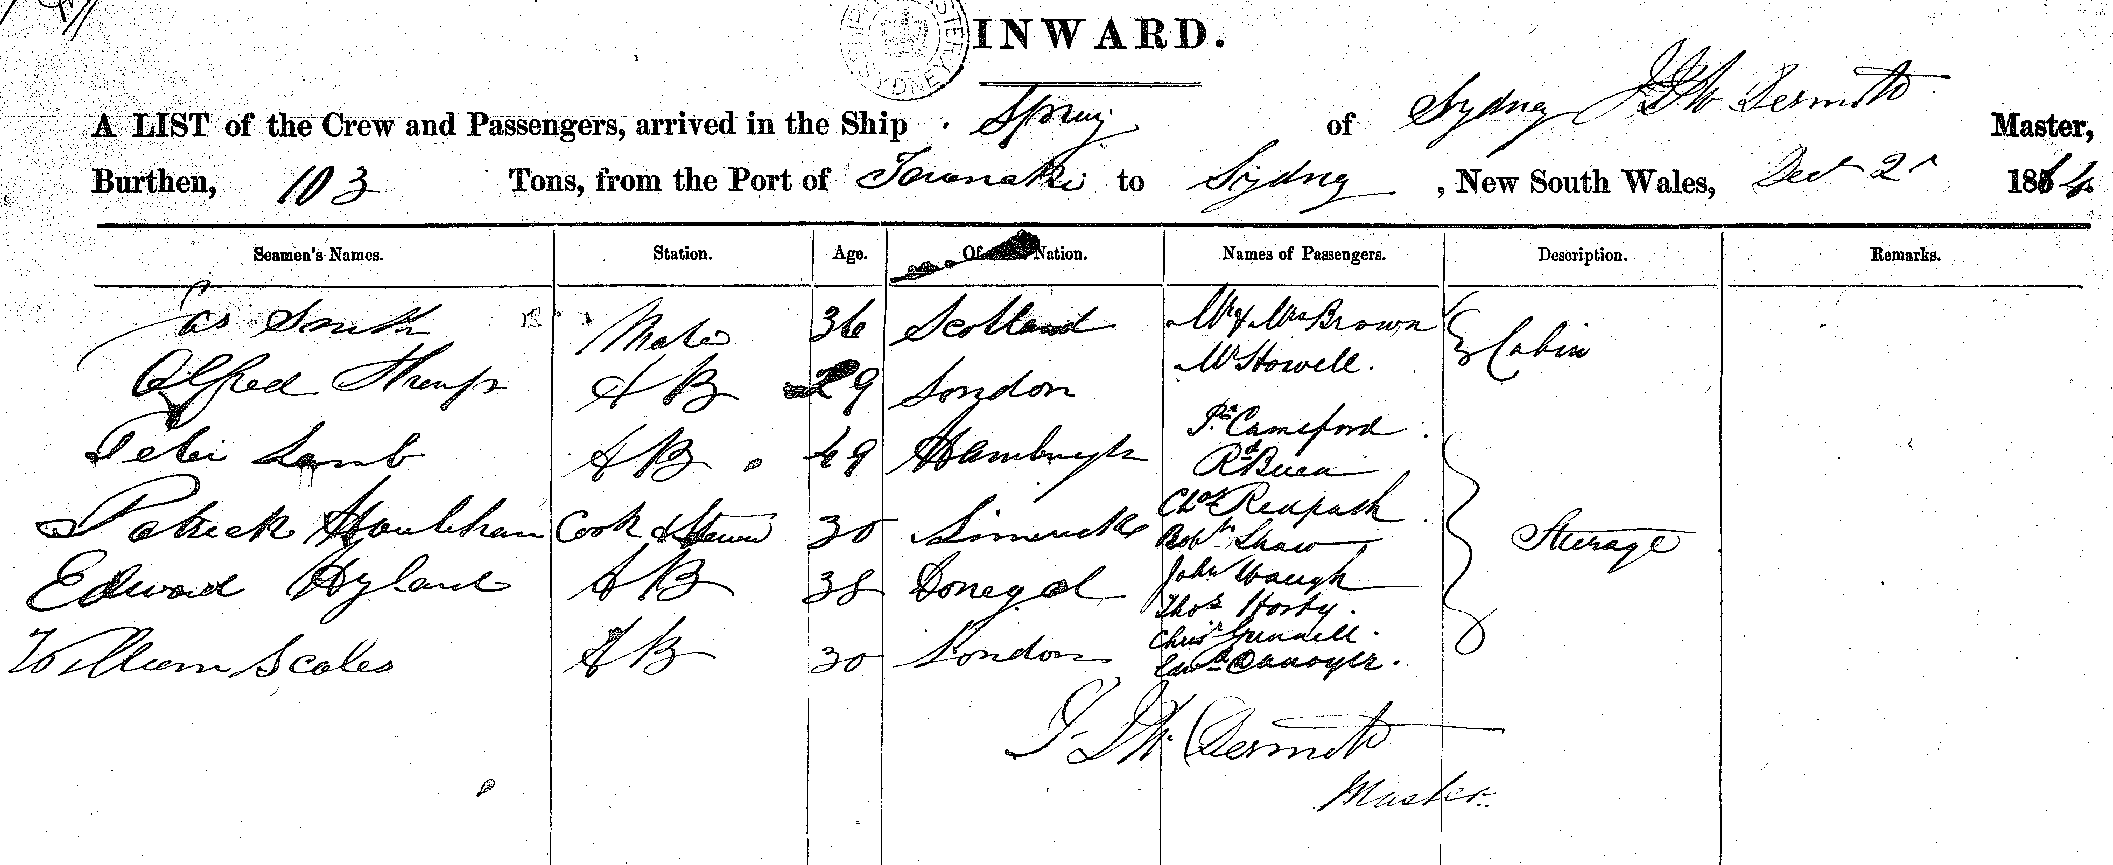 INWARD.
A LIST of the Crew and Passengers, arrived in the Ship Spray of Sydney Dermott Master,
Burthen, 103 Tons, from the Port of Taranaki to Sydney, New South Wales, Dec 2 1864
Seamen's Names. Station. Age. Of Nation. Names of Passengers. Description. Remarks.
Jas Smith Mate 36 Scotland Mr & Mrs Brown Cabin
Mr Howell.
Alfred A B 29 London
Cameford.
Peter Lamb A B 49 Hambrugh
Rd
Patrick Houlihan Cook & Stewd 30 Limerick Chas Redpath
Robt Shaw Steerage
Edward Hyland A B 38 Donegal John Waugh
Thos
William Scales A B 30 London Chrisr
Dermott
Master.